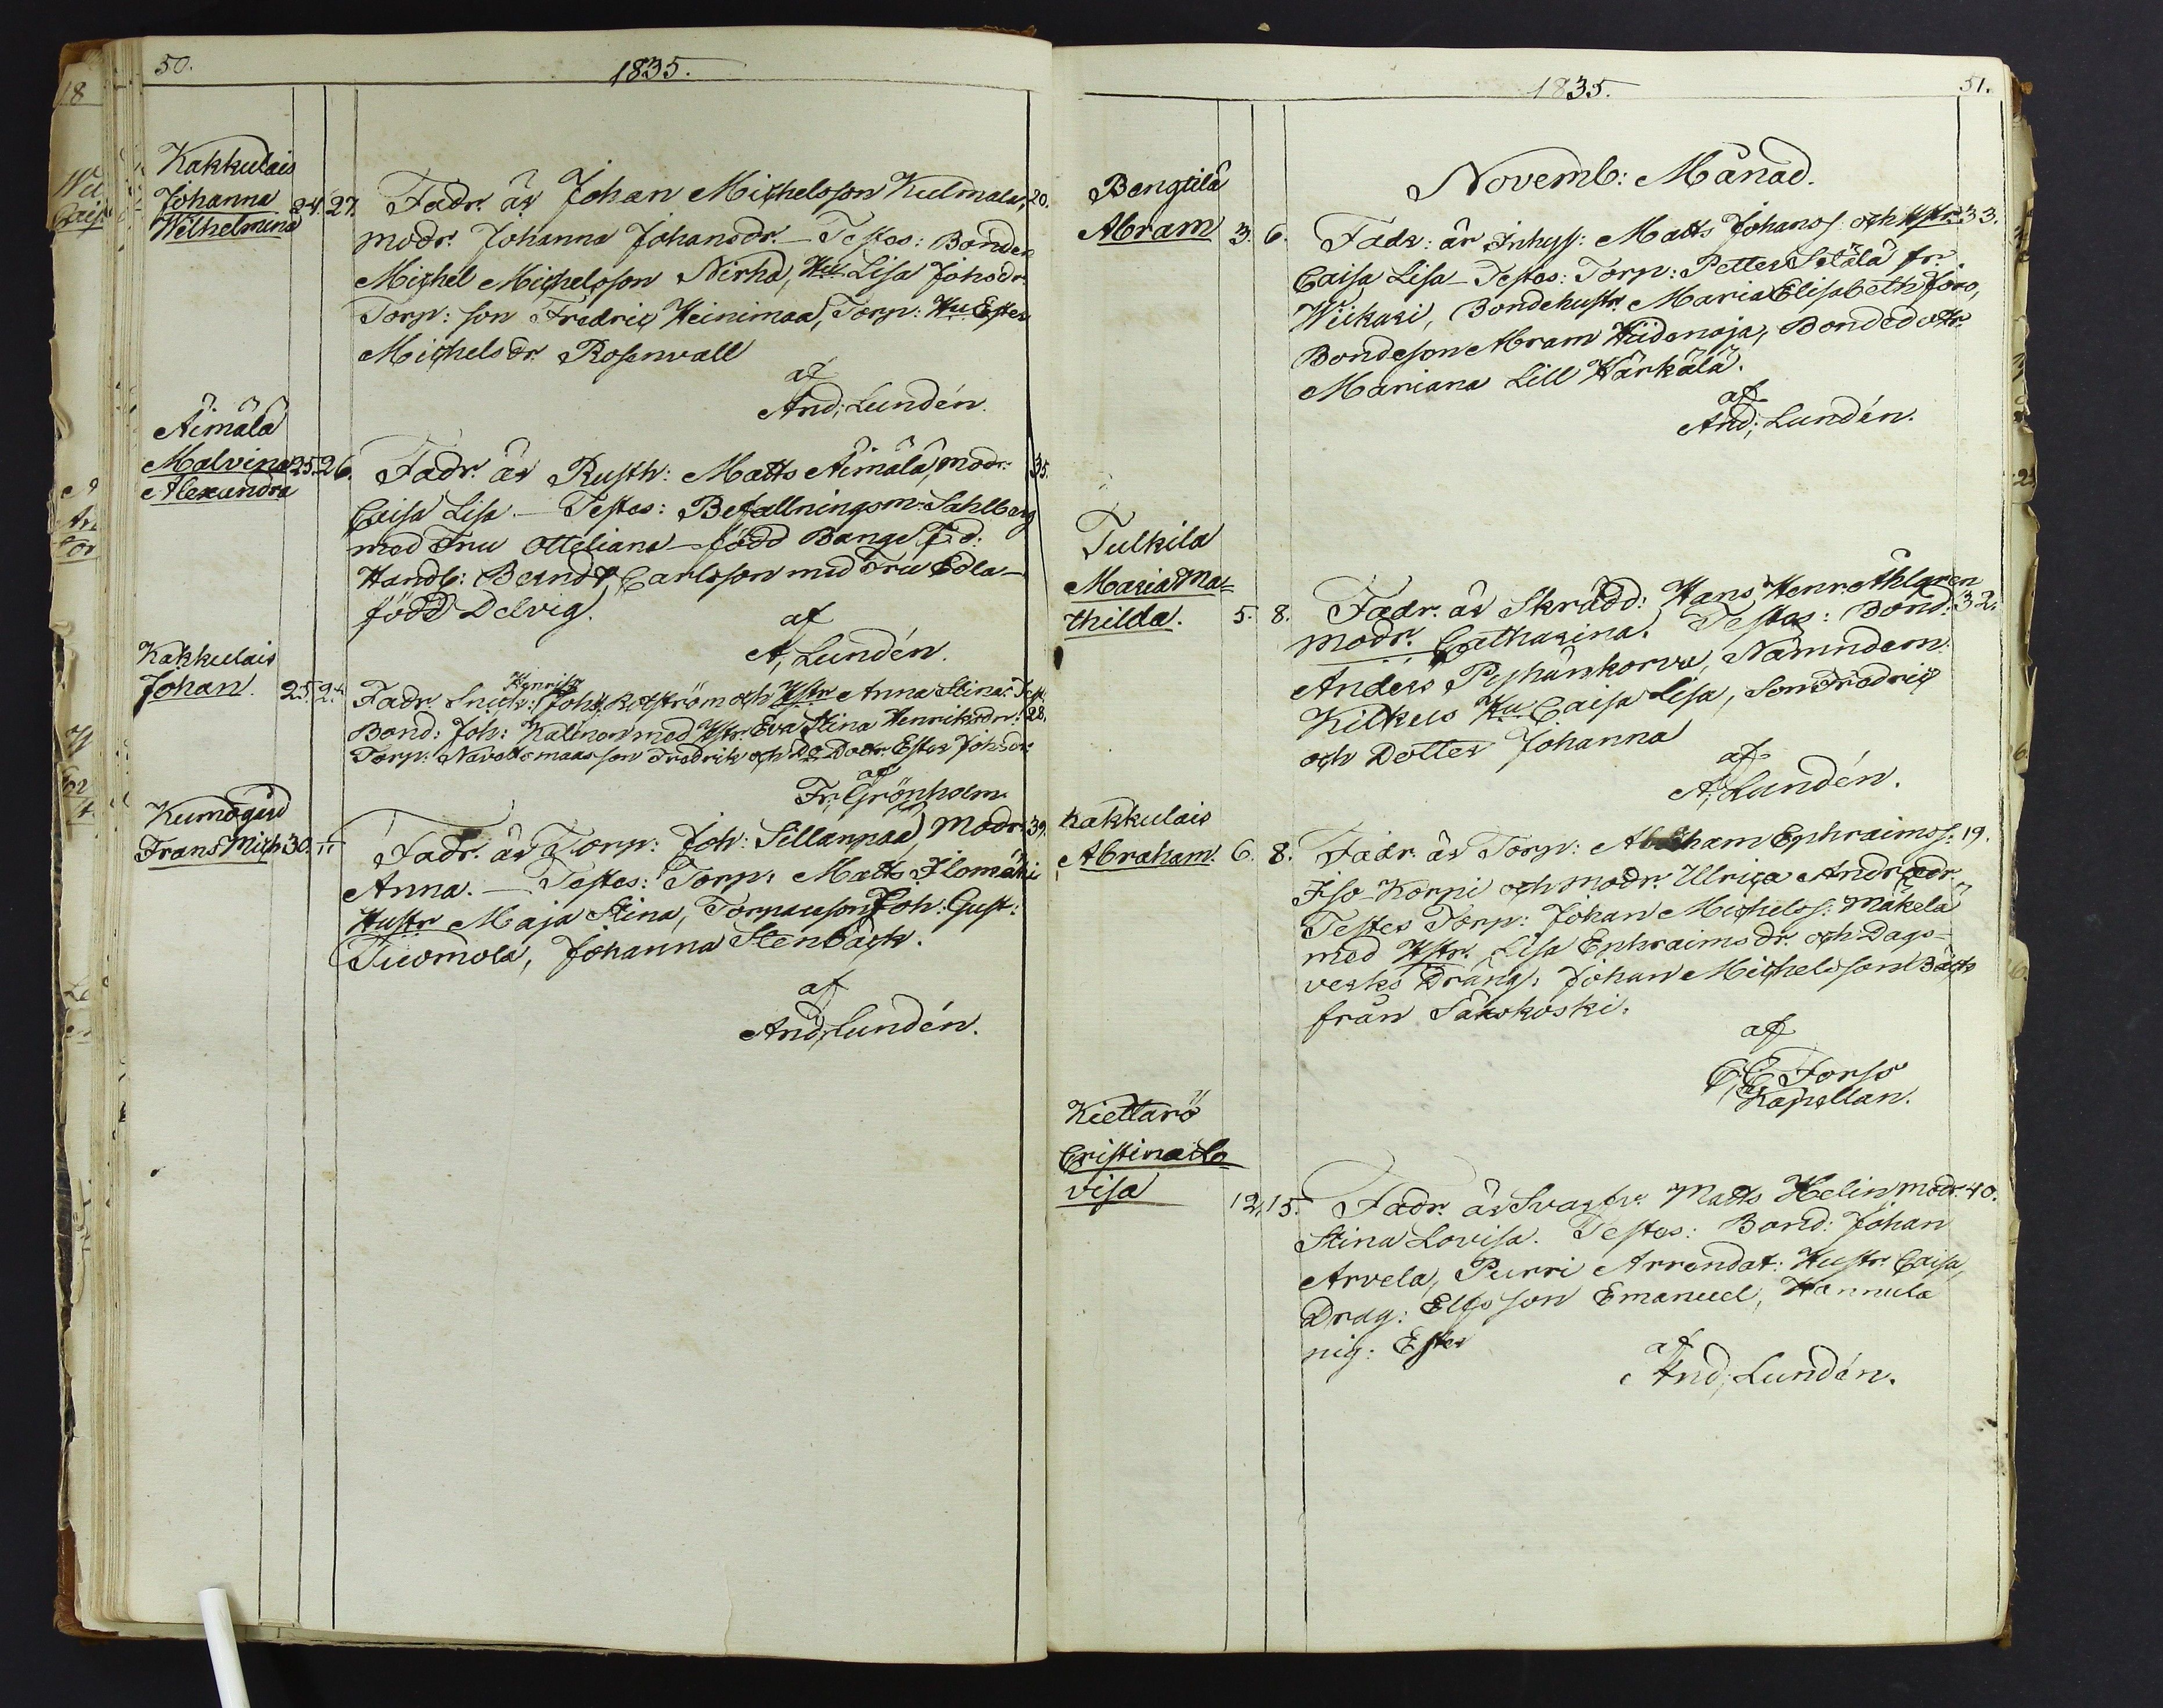 50.
1835.
Kakkulais
Johanna 24. 27.
Wilhelmina
Fadr. är Johan Michelsson Kulmala, 20.
modr. Johanna Johansdr. – Testes: Bonden
Michel Michelsson Nirha, Hu Lisa Johsdr.
Torp: son Fredric Heinimaa, Torp: Hu Ester
Michelsdr. Rosenvall
af
And; Lundén.
Äimälä
Malvina 25. 26.
Alexandra
Fadr. är Rusth: Matts Äimälä, modr. 35.
Caisa Lisa. – Testes: Befallningsm: Sahlberg
med Fru Otteliana – född Bange, F.d.
Handl: Berndt Carlsson med Fru Edla –
född Delvig.
af
A; Lundén.
Kakkulais
Johan. 25. 2.
Fadr. Snick: Henrik Joh: och Hstr Anna Stina. Test.
Bond: Joh: Kalinen med Hstr. Eva Stina Henriksdr. 28.
Torp: son Fredrik och Do Dottr. Ester Johsdr.
af
Fr; Grönholm.
Kumogård
Frans Mich 30. 11
Fadr. är Torp: Joh: Sillanpää, Modr. 39.
Anna. – Testes: Torp: Matts Ilomäki
Hustr Maja Stina, Torpareson Joh: Gust:
Tuomola, Johanna Stenbäck.
af
And; Lundén.
1835.
51.
Novemb: Månad.
Bengtilä
Abram 3. 6.
Fadr: är Inhys: Matts Johans. och Hstr. 33.
Caisa Lisa – Testes: Torp: Petter Setälä fr.
Wiikari, Bondehustr. Maria Elisabeth Joro,
Bondeson Abram Hiidenoja, Bondedottr.
Mariana Lill Härkälä.
af
And; Lundén.
Tulkila
Maria Ma-
thilda. 5. 8.
Fadr. är Skrädd: Hans Henr. Ahlgren
modr. Catharina. Testes: Bond: 32.
Anders Pyhänkorva, Nämndem.
Kilkus Hu Caisa Lisa, Son Fredric
och Dotter Johanna
af
A; Lundén.
Kakkulais
Abraham. 6. 8.
Fadr. är Torp: Abraham Ephraimss. 19.
Iso-Korpi och modr. Ulrica Andr.dr.
Testes Torp: Johan Michelss: Mäkelä
med Hstr. Lisa Ephraimsdr. och Dags-
verks Dräng: Johan Michelsson Bäck
från Säkskoski.
af
C; E Forss
Kapellan.
Kiettarö
Cristina Lo-
visa 12. 15.
Fadr. är Svarfv. Matts Helin, modr. 40.
Stina Lovisa. Testes: Bond: Johan
Arvela, Purri Arrendat: Hustr. Caisa,
Drag: Elgs son Emanuel, Hannula
pig: Ester
af
And; Lundén.